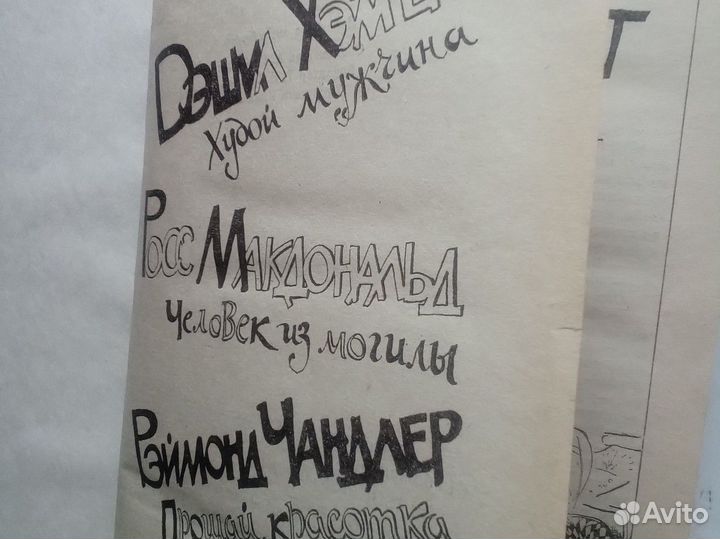 Дэшил Хэм
Худой мужчина
Росс Макдональд
Человек из могилы
Рэймонд Чандлер
Прощай, красотка
Т
Avito